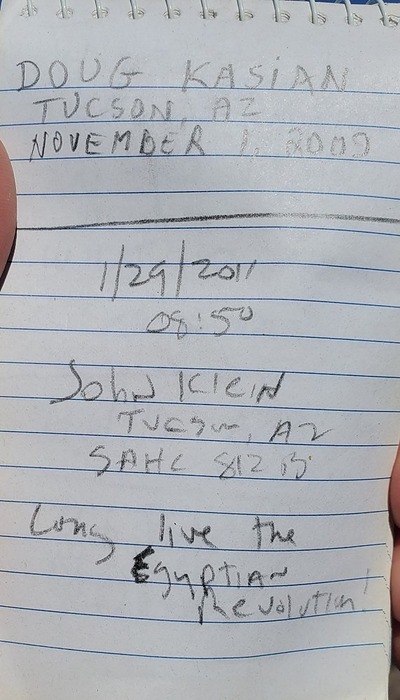 DOUG KASiAN
TUCSON, AZ
NOVEMBER 1, 2009
1/29/2011
08:50
John Klein
Tucson, AZ
SAHC 812 B
Long live the
Egyptian
Revolution!